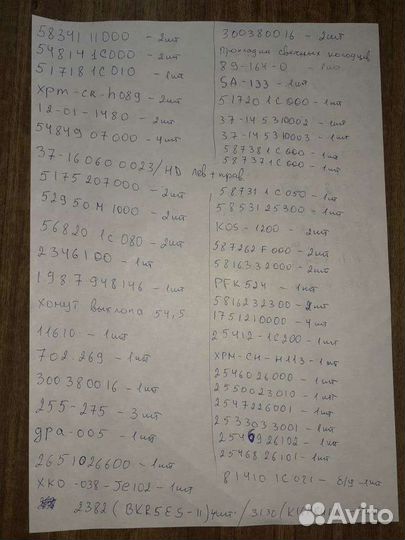 58341 11000 - 2шт
54814 1C000 - 2шт
51718 1C010 - 1шт
хрт-CR-h089 - 2шт
12-01-1480 - 2шт
54849 07000 - 4шт
37-16 060 0023/HD лев + прав
5175 207000 - 2шт
52950 M1000 - 2шт
56820 1C 080 - 2шт
2346100 - 1шт
1987948146 - 1шт
хомут выхлопа 54,5
11610 - 1шт
702.269 - 1шт
300380016 - 1шт
255-275 - 3шт
дра-005 - 1шт
2651026600 - 1шт
ХКО-038-Je102 - 1шт
2382 (BKR5ES-11) 4шт. / 3170
300380016 - 2шт
прокладка свечных колодцев
89-164-0
SA-133 - 1шт
51720 1C000 - 1шт
37-145310002 - 1шт
37-145310003 - 1шт
58738 1C000 - 1шт
58737 1C000 - 1шт
58731 1C050 - 1шт
5853125300 - 1шт
KOS-1200 - 2шт
587262F000 - 2шт
5816332000 - 2шт
PFK524 - 1шт
5816232300 - 2шт
1751210000 - 4шт
25412-1C200 - 1шт
ХРМ-CH-H113 - 1шт
2546026000 - 1шт
2550023010 - 1шт
2547226001 - 1шт
2533033001 - 1шт
2546926102 - 1шт
2546826101 - 1шт
81410 1C021 - б/у 1шт
Avito